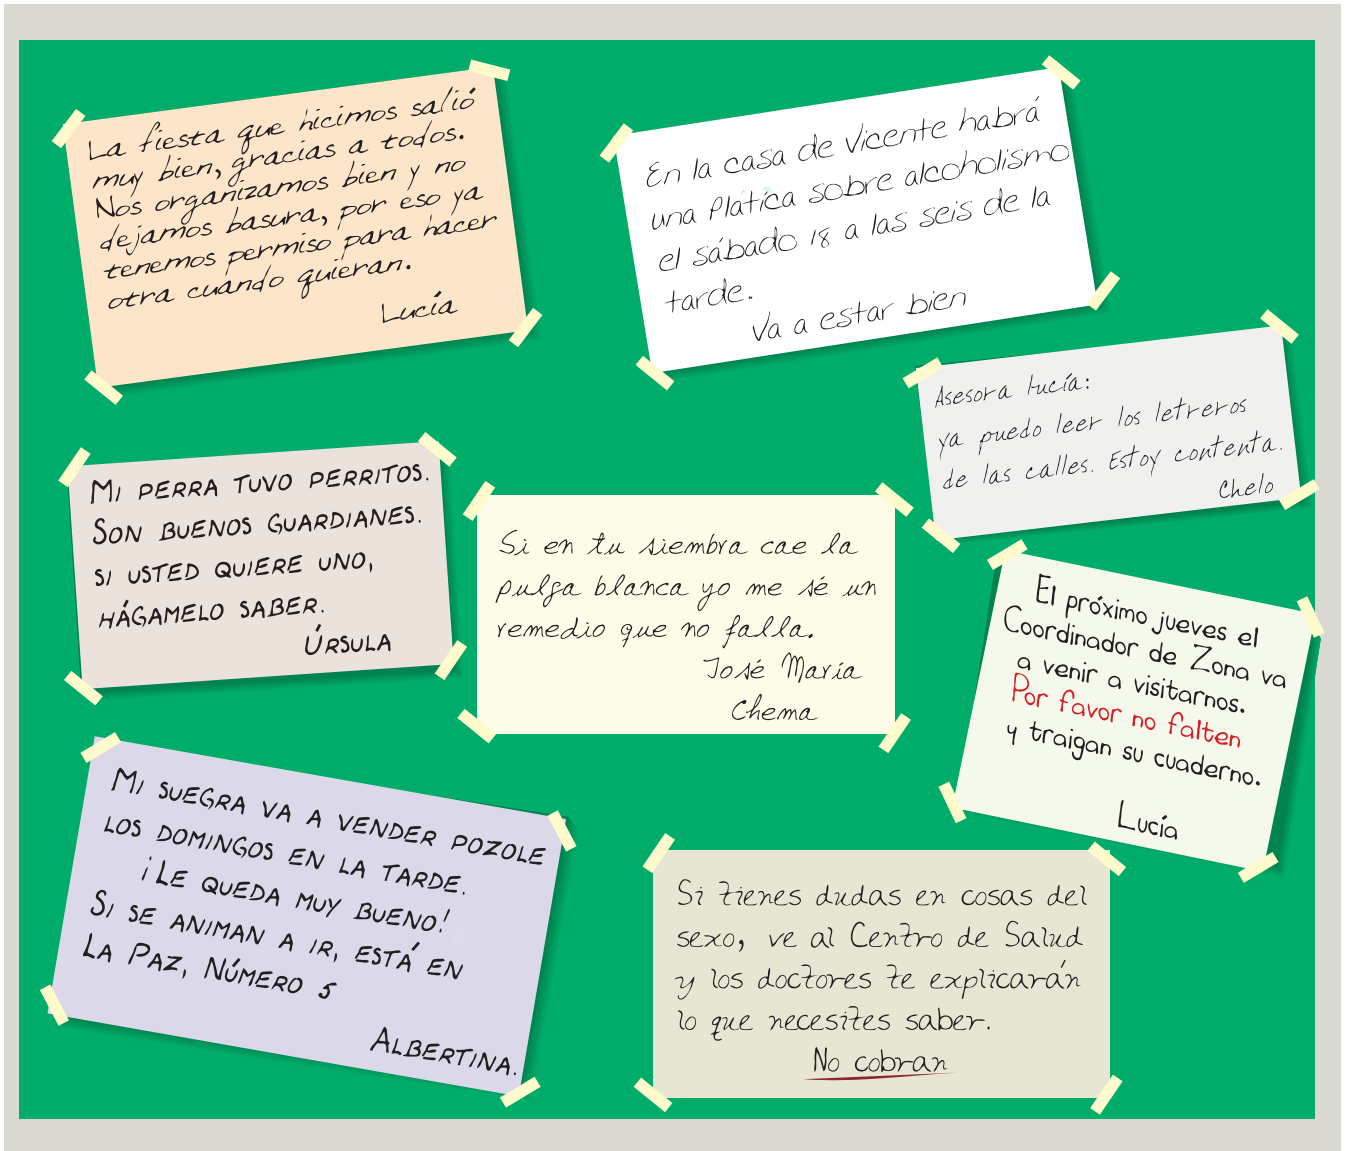 La fiesta que hicimos salió
muy bien, gracias a todos.
Nos organizamos bien y no
dejamos basura, por eso ya
tenemos permiso para hacer
otra cuando quieran.
Lucía
En la casa de Vicente habrá
una Platica sobre alcoholismo
el sábado 18 a las seis de la
tarde.
Va a estar bien
Asesora Lucía:
ya puedo leer los letreros
de las calles. Estoy contenta.
Chelo
MI PERRA TUVO PERRITOS.
SON BUENOS GUARDIANES.
SI USTED QUIERE UNO,
HÁGAMELO SABER.
ÚRSULA
Si en tu siembra cae la
pulga blanca yo me sé un
remedio que no falla.
José María
Chema
El próximo jueves el
Coordinador de Zona va
a venir a visitarnos.
Por favor no falten
y traigan su cuaderno.
Lucía
MI SUEGRA VA A VENDER POZOLE
LOS DOMINGOS EN LA TARDE.
¡LE QUEDA MUY BUENO!
SI SE ANIMAN A IR, ESTÁ EN
LA PAZ, NÚMERO 5
ALBERTINA.
Si tienes dudas en cosas del
sexo, ve al Centro de Salud
y los doctores te explicarán
lo que necesites saber.
No cobran